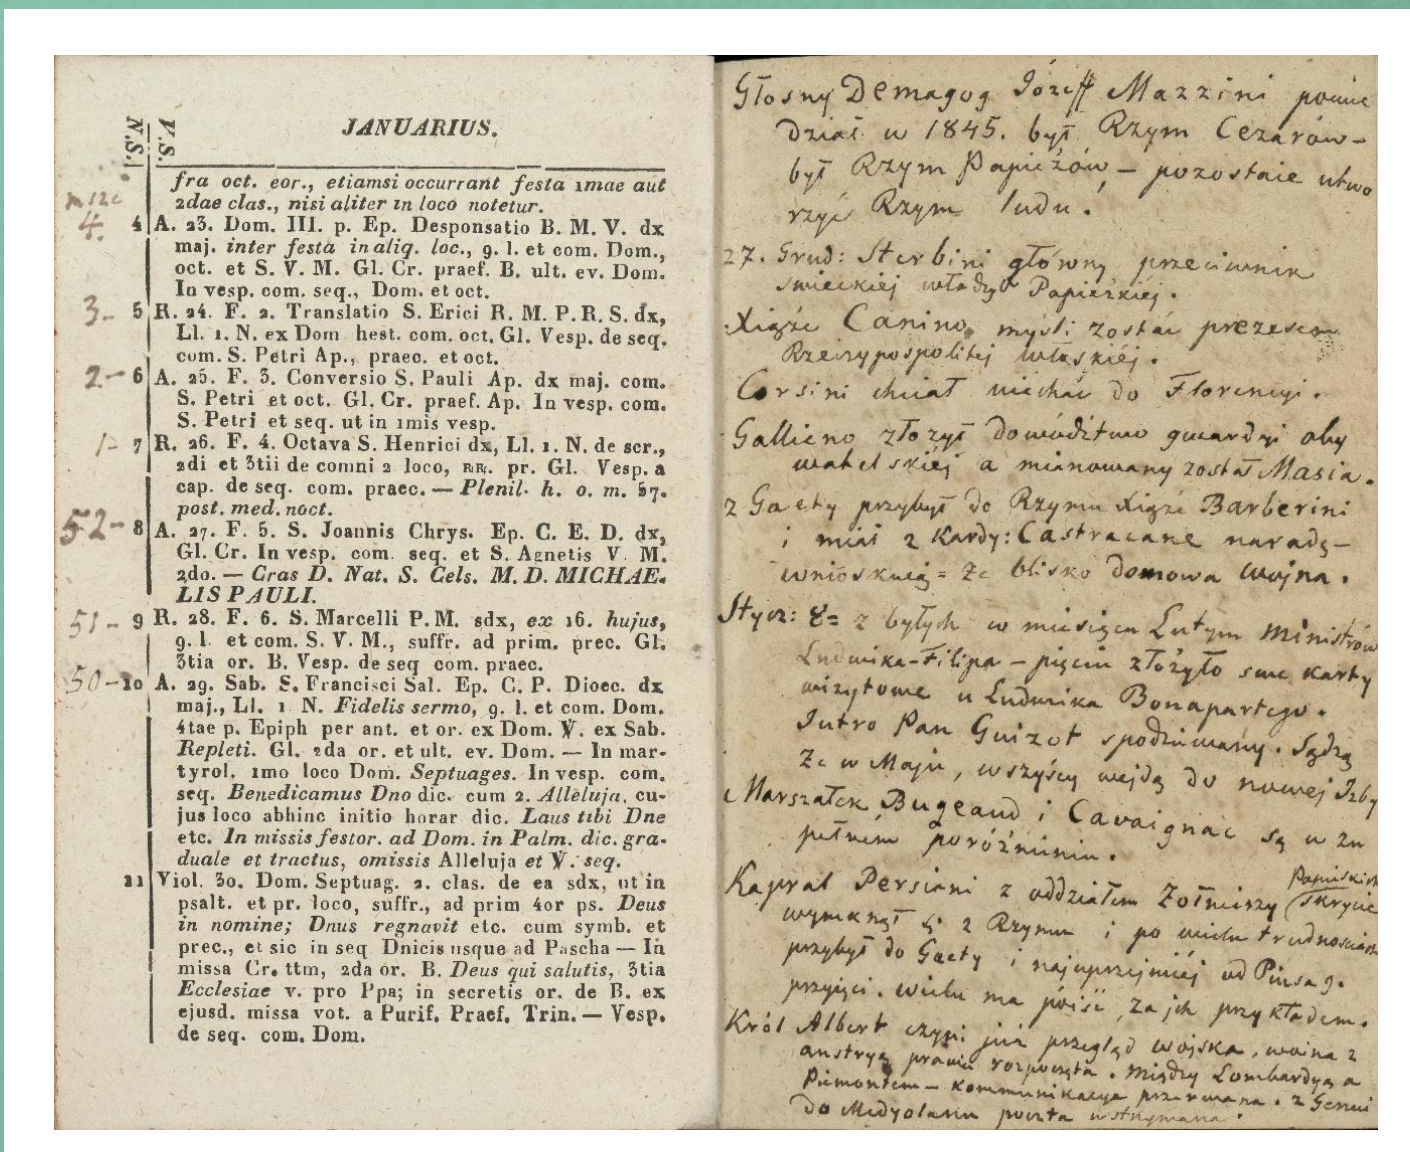 N.S. V.S.
JANUARIUS.
fra oct. eor., etiamsi occurrant festa 1mae aut
2dae clas., nisi aliter in loco notetur.
4. 4 A. 23. Dom. III. p. Ep. Desponsatio B. M. V. dx
maj. inter festa in aliq. loc., 9. l. et com. Dom.,
oct. et S. V. M. Gl. Cr. praef. B. ult. ev. Dom.
In vesp. com. seq., Dom. et oct.
3- 5 R. 24. F. 2. Translatio S. Erici R. M. P. R. S. dx,
Ll. 1. N. ex Dom hest. com. oct. Gl. Vesp. de seq.
com. S. Petri Ap., praec. et oct.
2- 6 A. 25. F. 3. Conversio S. Pauli Ap. dx maj. com.
S. Petri et oct. Gl. Cr. praef. Ap. In vesp. com.
S. Petri et seq. ut in 1mis vesp.
1- 7 R. 26. F. 4. Octava S. Henrici dx, Ll. 1. N. de scr.,
2di et 3tii de comni 2 loco, RR. pr. Gl. Vesp. a
cap. de seq. com. praec. — Plenil. h. o. m. 57.
post. med. noct.
52- 8 A. 27. F. 5. S. Joannis Chrys. Ep. C. E. D. dx,
Gl. Cr. In vesp. com. seq. et S. Agnetis V. M.
2do. — Cras D. Nat. S. Cels. M. D. MICHAE-
LIS PAULI.
51- 9 R. 28. F. 6. S. Marcelli P. M. sdx, ex 16. hujus,
9. l. et com. S. V. M., suffr. ad prim. prec. Gl.
3tia or. B. Vesp. de seq com. praec.
50- 10 A. 29. Sab. S. Francisci Sal. Ep. C. P. Dioec. dx
maj., Ll. 1 N. Fidelis sermo, 9. l. et com. Dom.
4tae p. Epiph per ant. et or. ex Dom. ℣. ex Sab.
Repleti. Gl. 2da or. et ult. ev. Dom. — In mar-
tyrol. 1mo loco Dom. Septuages. In vesp. com.
seq. Benedicamus Dno dic. cum 2. Alleluja, cu-
jus loco abhinc initio horar dic. Laus tibi Dne
etc. In missis festor. ad Dom. in Palm. dic. gra-
duale et tractus, omissis Alleluja et ℣. seq.
11 Viol. 30. Dom. Septuag. 2. clas. de ea sdx, ut in
psalt. et pr. loco, suffr., ad prim 4or ps. Deus
in nomine; Dnus regnavit etc. cum symb. et
prec., et sic in seq Dnicis usque ad Pascha — In
missa Cr. ttm, 2da or. B. Deus qui salutis, 3tia
Ecclesiae v. pro Ppa; in secretis or. de B. ex
ejusd. missa vot. a Purif. Praef. Trin. — Vesp.
de seq. com. Dom.
Głosny Demagog Józeff Mazzini powie
dział w 1845. był Rzym Cezarów-
był Rzym Papieżów, - pozostaie utwo
rzyć Rzym ludu.
27. Grud: Sterbini główny przeciwnik
swieckiéj władzy Papieskiej.
Xiąże Canino, myśli zostać prezesem
Rzeczypospolitej włoskiéj.
Corsini chciał uiechać do Florencyi.
Gallieno złożył dowództwo gwardyi oby
watelskiéj a mianowany został Masia.
z Gaety przybył do Rzymu Xiąże Barberini
i miał z Kardy: Castracane naradę-
wnioskuią= że blisko domowa woina.
Stycz: 8= z byłych w miesiącu Lutym Ministrów
Ludwika-Filipa - pięciu złożyło swe karty
wizytowe u Ludwika Bonapartego.
Jutro Pan Guizot spodziewany. Sądzą
że w Maju, wszyscy wejdą do nowej Izby
Marszałek Bugeaud i Cavaignac są w zu
pełném poróżnieniu.
Kapral Persiani z oddziałem Żołnierzy Papieskich skrycie
wymknął się z Rzymu i po wielu trudnosciach
przybył do Gaety i najuprzejmiéj od Piusa 9.
przyięci. wielu ma póiść za jch przykładem.
Król Albert czyni już przegląd wojska, woina z
austryą prawie rozpoczęta. Między Lombardyą a
Piemontem - kommunikacya przerwana. z Genui
do Medyolanu poczta wstrzymana.